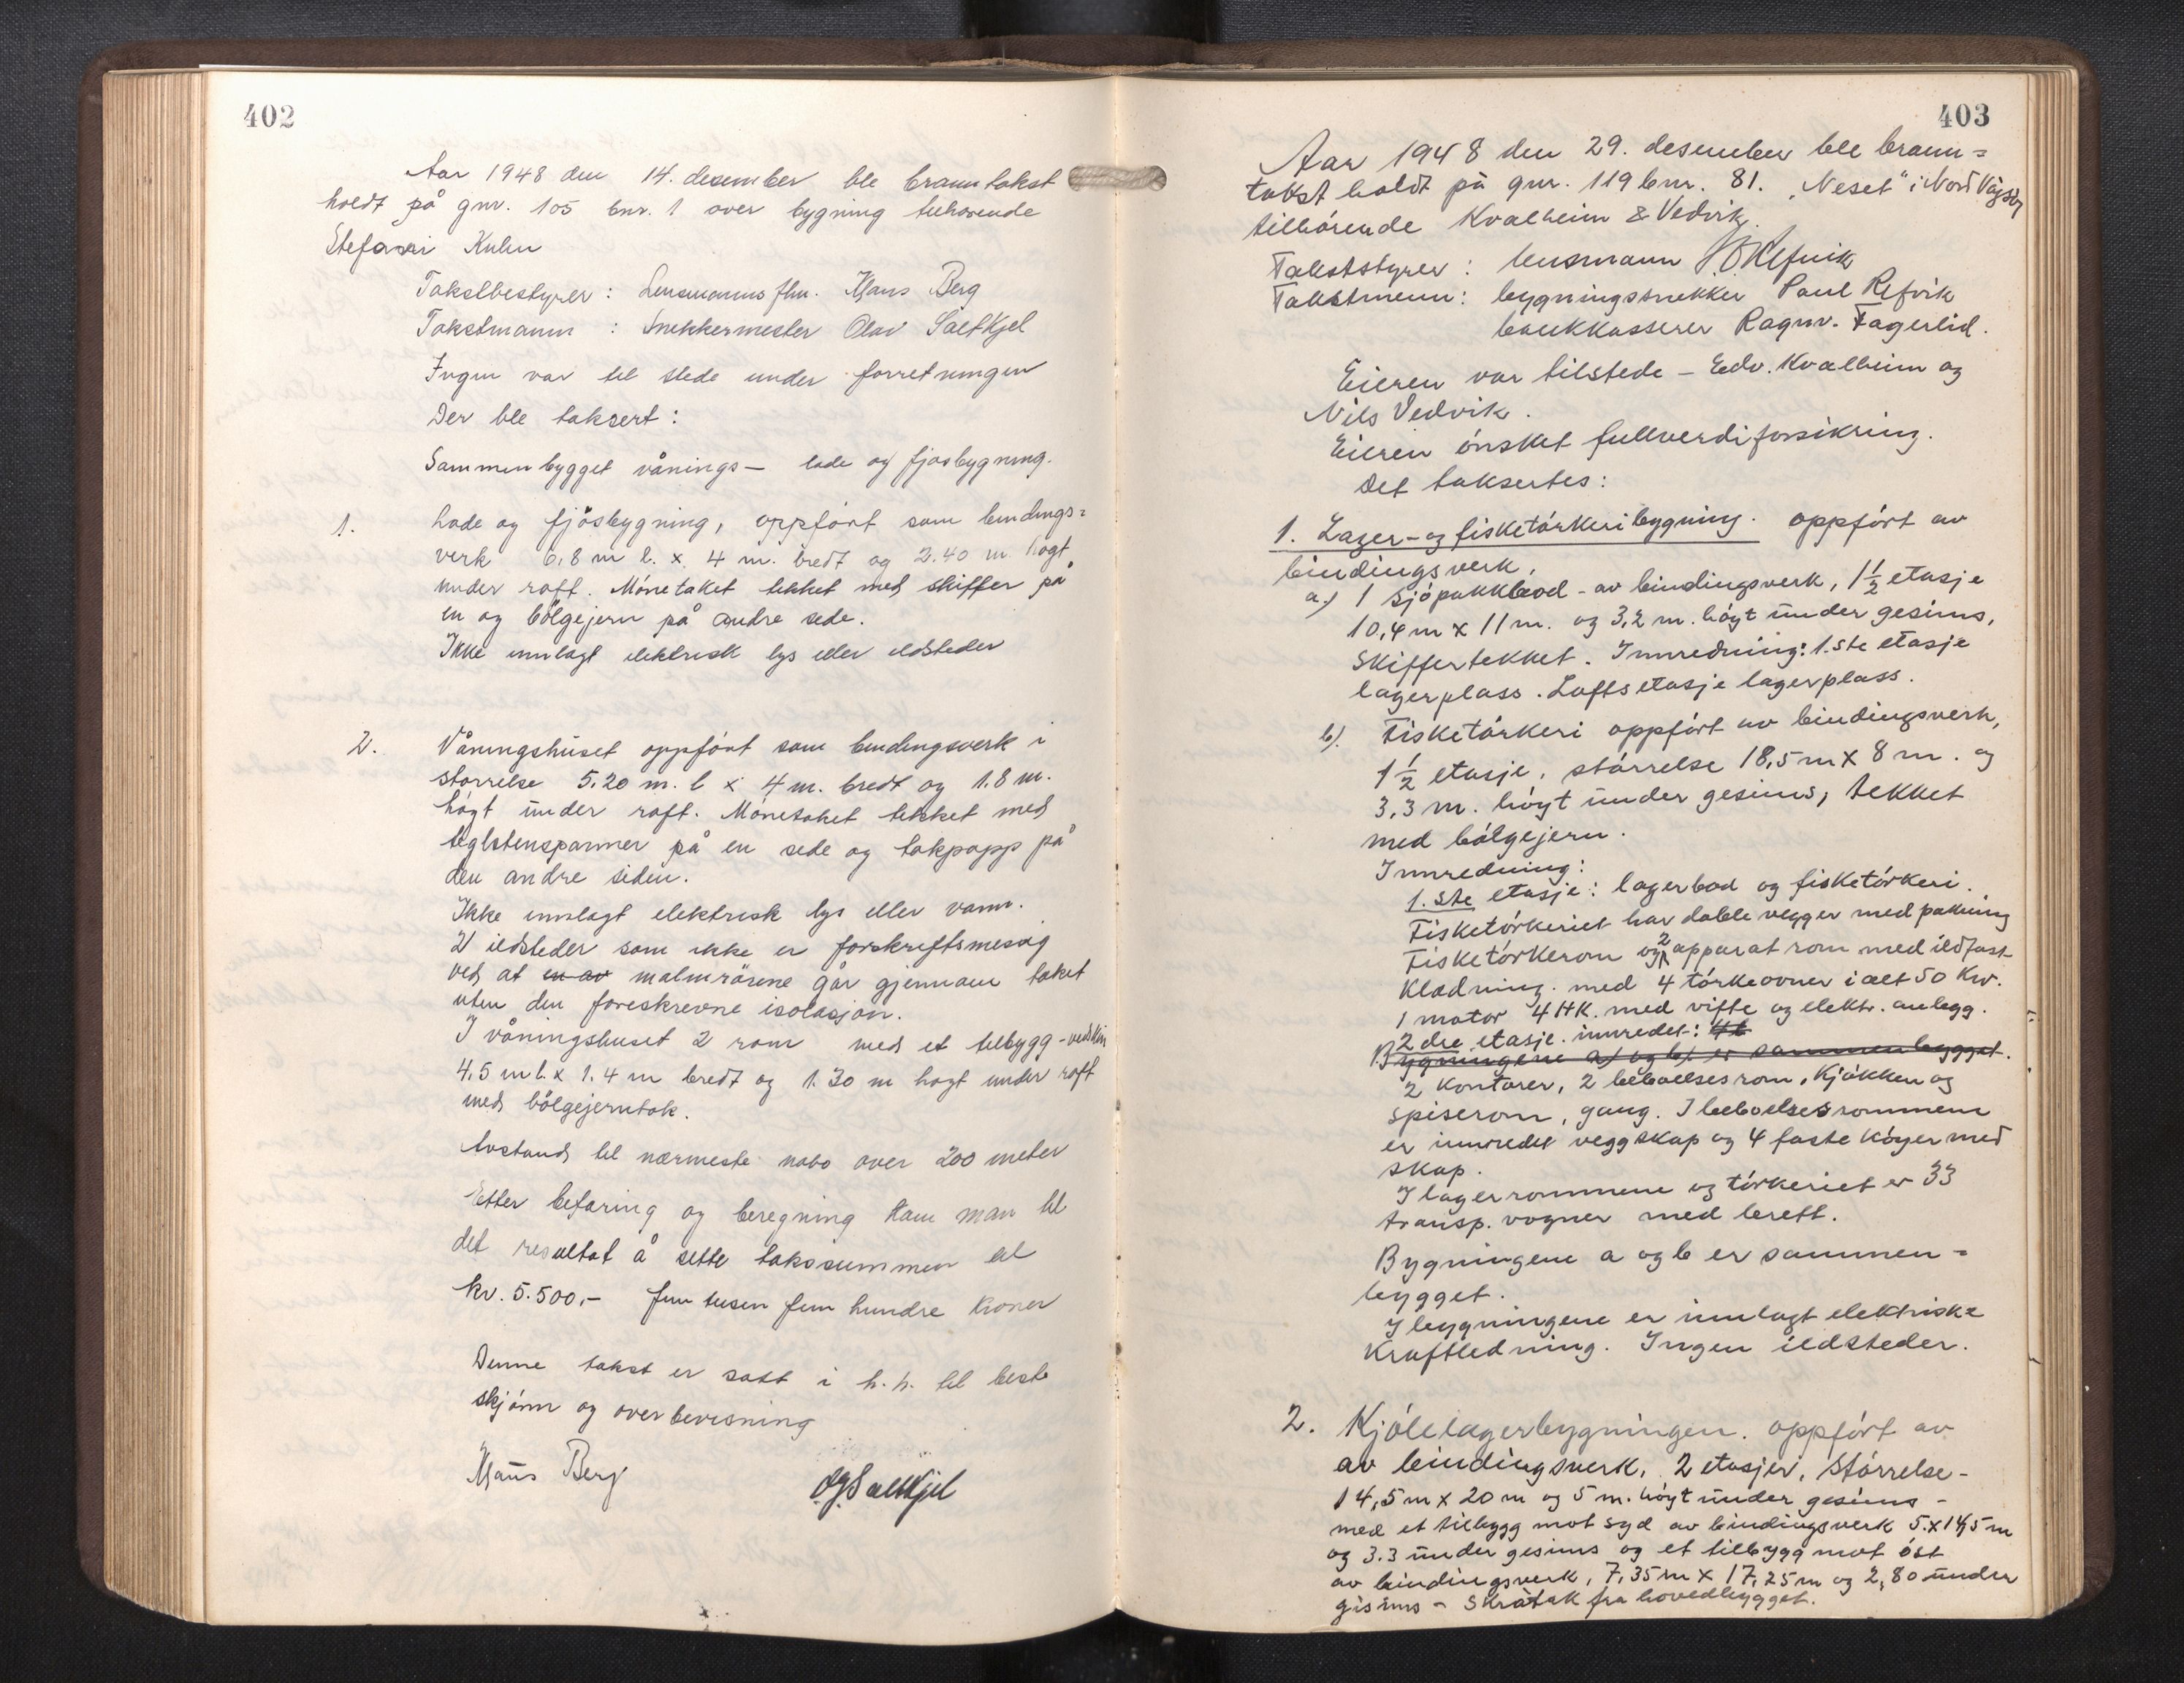 402
Aar 1948 den 14. desember ble branntakst
holdt på gnr. 105 bnr. 1 over bygning tilhørende
Stefani Kuhn
Takstbestyrer: Lensmannsfhm. Hans Berg
Takstmann : Snekkermester Olav Saltkjel
Ingen var til stede under forretningen
Der ble taksert:
Sammenbygget vånings- lade og fjøsbygning.
1. Lade og fjösbygning, oppført som bindings=
verk 6,8 m l. x 4 m. bredt og 2.40 m. høgt
under raft. Mønetaket tekket med skiffer på
en og bölgejern på andre side.
Ikke innlagt elektrisk lys eller ildsteder
2. Våningshuset oppført som bindingsverk i
størrelse 5.20 m. l x 4 m. bredt og 1.8 m.
høgt under raft. Mønetaket tekket med
teglstenspanner på en side og takpapp på
den andre siden.
Ikke innlagt elektrisk lys eller vann.
2 ildsteder som ikke er forskriftsmessig
ved at en av malmrörene går gjennom taket
uten den foreskrevne isolasjon.
I våningshuset 2 rom med et tilbygg - vedskin
4.5 m l. x 1.4 m bredt og 1.30 m høgt under raft
med bölgejerntak.
Avstand til nærmeste nabo over 200 meter
Etter befaring og beregning kam man til
det resultat å sette takssummen til
kr. 5.500,- fem tusen fem hundre kroner
Denne takst er satt i h.h. til beste
skjønn og overbevisning
Hans Berg OJSaltkjel
403
Aar 1948 den 29. desember ble brann=
takst holdt på gnr. 119 bnr. 81. „Neset" i Nord Vågsøy
tilhörende Kvalheim & Vedvik
Takststyrer: lensmann Refvik
Takstmenn: bygningssnekker Paul Refvik
bankkasserer Ragnv. Fagerlid.
Eieren var tilstede - Edv. Kvalheim og
Nils Vedvik.
Eieren ónsket fullverdiforsikring.
Det taksertes:
1. Lager- og fisketórkeribygning. oppfórt av
bindingsverk.
a.) 1 sjöpakkbod - av bindingsverk, 1½ etasje
10,4 m x 11 m. og 3,2 m. hóyt under gesims,
Skiffertekket. Innredning: 1.ste etasje
lagerplass. Loftsetasje lagerplass.
b). Fisketórkeri oppfórt av bindingsverk,
1½ etasje, stórrelse 18,5 m x 8 m. og
3,3 m. hóyt under gesims, tekket
med bólgejern.
Innredning:
1.ste etasje: lagerbod og fisketórkeri.
Fisketórkeriet har doble vegger med pakning
Fisketórkerom og 2 apparatrom med ildfast
Kledning. med 4 tórkeovner i alt 50 Kw.
1 motor 4 HK. med vifte og elektr. anlegg.
2 dre etasje. innredet:
Bygningene a) og b) er sammenbygget.
2 Kontorer, 2 beboelsesrom, Kjókken og
spiserom, gang. I beboelsesrommene
er innredet veggskap og 4 faste kóyer med
skap.
I lagerrommene og tórkeriet er 33
transp. vogner med brett.
Bygningene a og b er sammen=
bygget.
I bygningene er innlagt elektriske
Kraftledning. Ingen ildsteder.
2. Kjólelagerbygningen. oppfórt av
av bindingsverk, 2 etasjer, Stórrelse-
14,5 m x 20 m og 5 m. hóyt under gesims -
med et tilbygg mot syd av bindingsverk 5. x 14,5 m
og 3.3 under gesims og et tilbygg mot óst
av bindingsverk, 7,35 m x 17,25 m og 2,80 under
gesims - Skråtak fra hovedbygget.